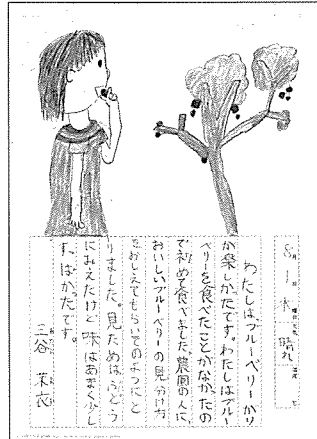 8月1日水曜日天気晴れ温度 ℃
わたしは、ブルーベリーかり
が楽しかたです。わたしはブルー
ベリーを食べたことがなかたの
で初めて食べました。農園の人に、
おいしいブルーベリーの見分け方
をおしえてもらいてのつにと
りました。見ためはぶどう
にみえたけど味はあまく少し
すっぱかったです。
三谷 茉衣